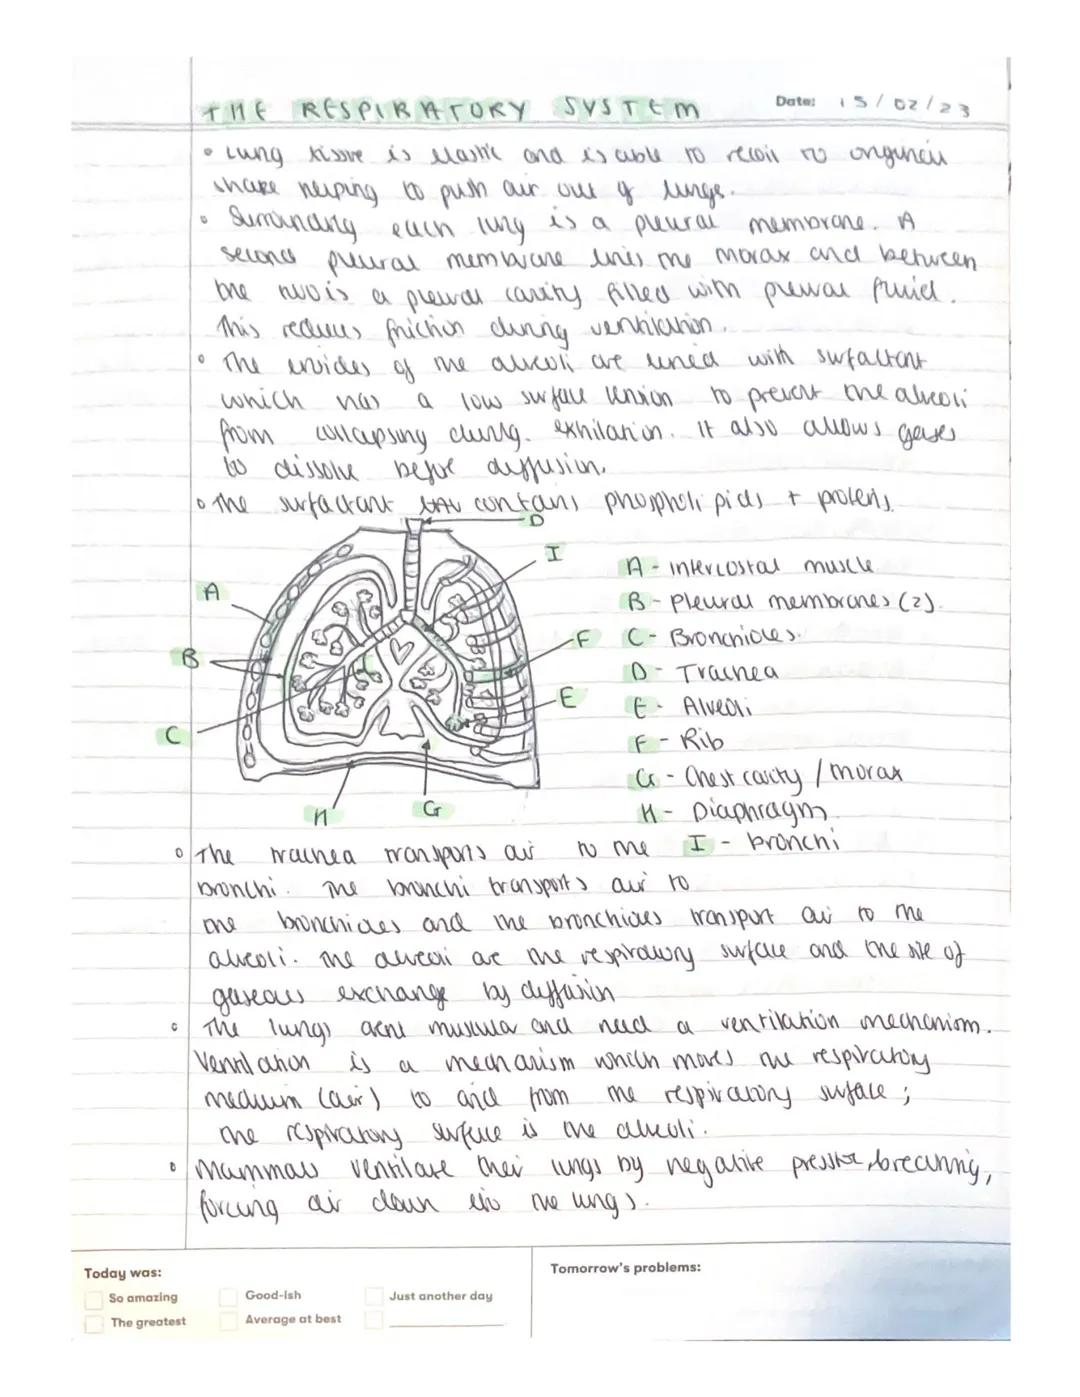 THE RESPIRATORY SYSTEM
Date: 15/02/23
• Lung tissue is elastic and is able to recoil to original
shape helping to push air out of lungs.
• Surrounding each lung is a pleural membrane. A
second pleural membrane lines the thorax and between
the two is a pleural cavity filled with pleural fluid.
This reduces friction during ventilation.
• The insides of the alveoli are lined with surfactant
which has a low surface tension to prevent the alveoli
from collapsing during. exhilation. It also allows gases
to dissolve before diffusion.
• The surfactant contains phospholipids + proteins.
D
I
A
B
C
F
E
H
G
A - intercostal muscle
B - Pleural membranes (2).
C - Bronchioles.
D - Trachea
E - Alveoli
F - Rib
G - Chest cavity / thorax
H - Diaphragm.
I - bronchi
• The trachea transports air to the
bronchi. The bronchi transports air to
the bronchioles and the bronchioles transport air to the
alveoli. The alveoli are the respiratory surface and the site of
gaseous exchange by diffusion
• The lungs arent muscular and need a ventilation mechanism.
Ventilation is a mechanism which moves the respiratory
medium (air) to and from the respiratory surface ;
the respiratory surface is the alveoli.
• Mammals ventilate their lungs by negative pressure breathing,
forcing air down into the lungs.
Today was:
So amazing
Good-ish
Just another day
The greatest
Average at best
Tomorrow's problems: